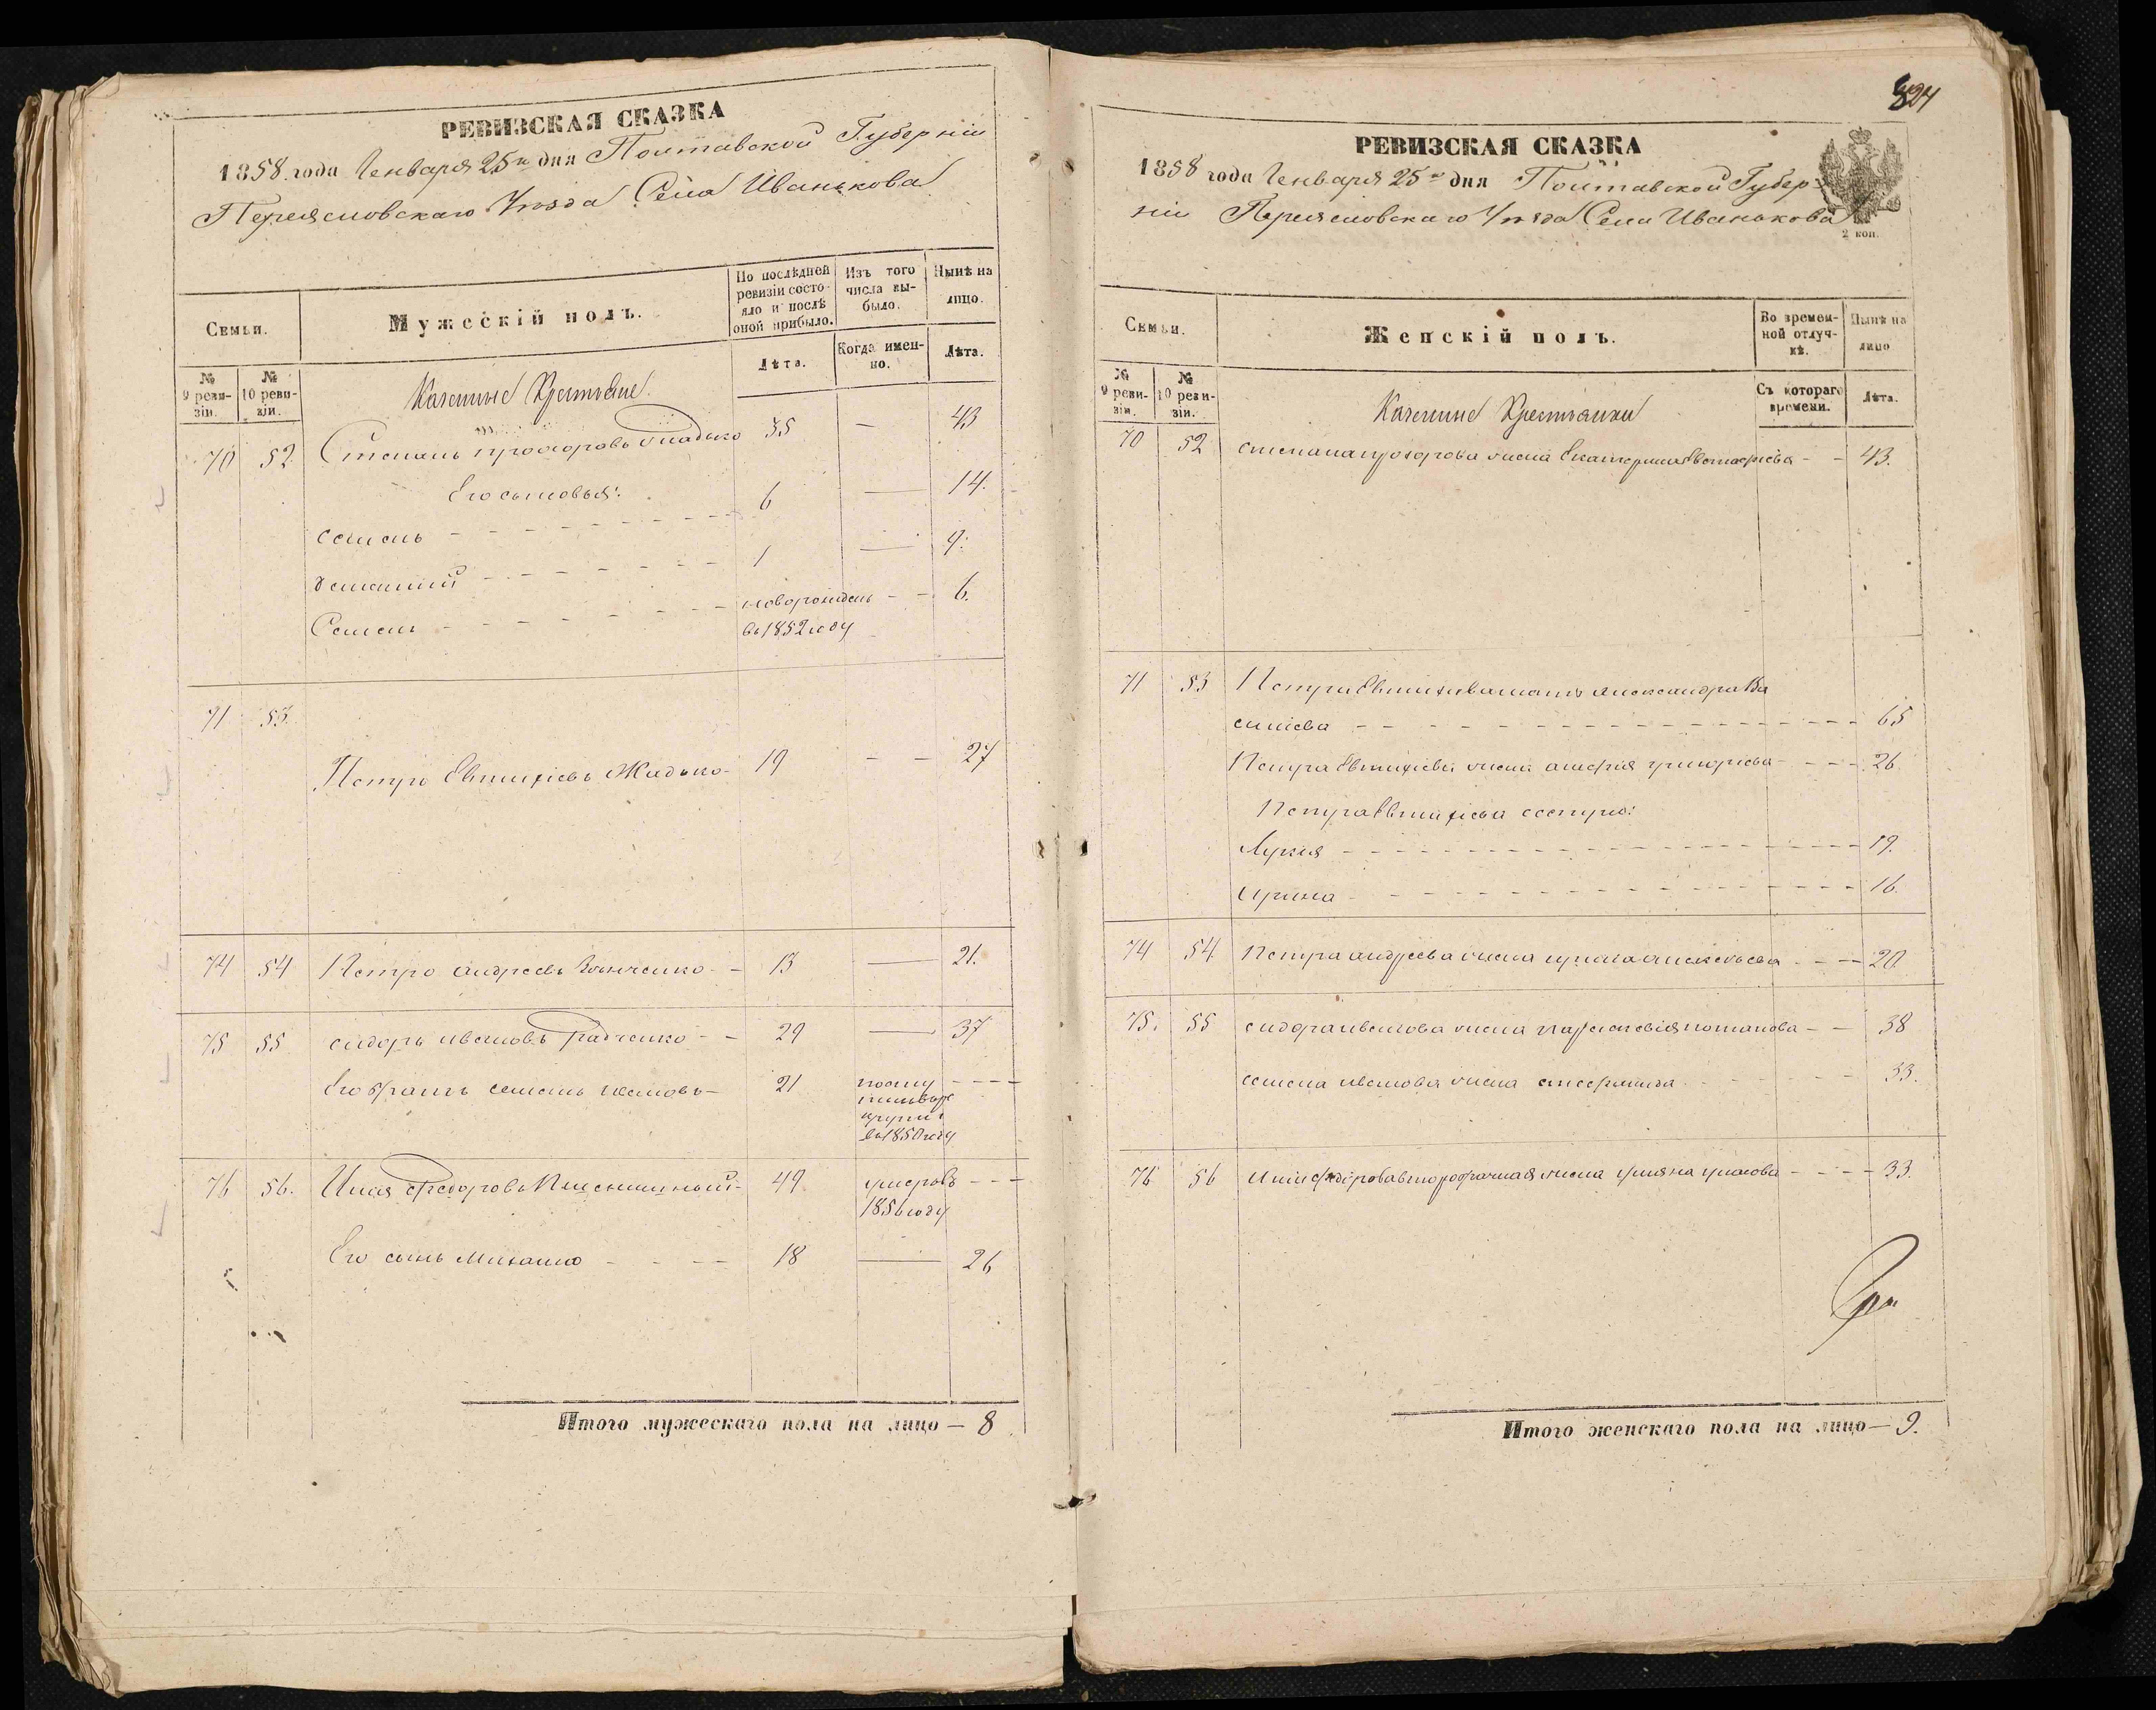 РЕВИЗСКАЯ СКАЗКА
1858 года Генваря 25го дня Полтавской Губерніи
Переясловскаго Уѣзда Села Иванькова
Семьи.
Мужескій полъ.
По послѣдней ревизіи состояло и послѣ оной прибыло.
Изъ того числа выбыло.
Нынѣ на лицо.
№ 9 ревизіи.
№ 10 ревизіи.
Казенные Крестьяне.
Лѣта.
Когда именно.
Лѣта.
70 52 Степанъ Прохоровъ 35 — 43
Его сыновья:
Семенъ - - - 6 — 14.
- - - 1 — 9.
Семенъ - - - новорожденъ - - 6.
въ 1852 году
71 53.
Петро Евтихіевъ Жадько - 19 - - 27
74 54 Петро Андреевъ - - 13 — 21.
75 55 Сидоръ Ивановъ Радченко - - 29 — 37
Его братъ Семенъ Ивановъ - 21 - - -
въ рек
руты
въ 1850 году
76 56. Илія Федоровъ Пшеничный - 49. умеръ въ - - -
1856 году
Его сынъ Михайло - - - 18 — 26
Итого мужескаго пола на лицо — 8
824
РЕВИЗСКАЯ СКАЗКА
1858 года Генваря 25го дня Полтавской Губер-
ніи Переясловскаго Уѣзда Села Иванькова
2 коп.
Семьи.
Женскій полъ.
Во временной отлучкѣ.
Нынѣ на лицо
№ 9 ревизіи.
№ 10 ревизіи.
Казенные Крестьянки
Съ котораго времени.
Лѣта.
70 52 Степана Прохорова жена Екатерина Евстафіева - - 43.
71 53 Петра Евтихіева мать Александра Ва
силіева - - - 65
Петра Евтихіева жена Григорьева - - - 26
Петра Евтихіева сестры:
Лукія - - - 19.
Ирина - - - 16.
74 54 Петра Андреева жена Ирина Алексѣева - - - 20.
75. 55 Сидора Иванова жена Параскевія Потапова - - 38
Семена Иванова жена - - - 33.
76 56 Иліи Федорова второбрачная жена - - - 33.
Итого женскаго пола на лицо — 9.